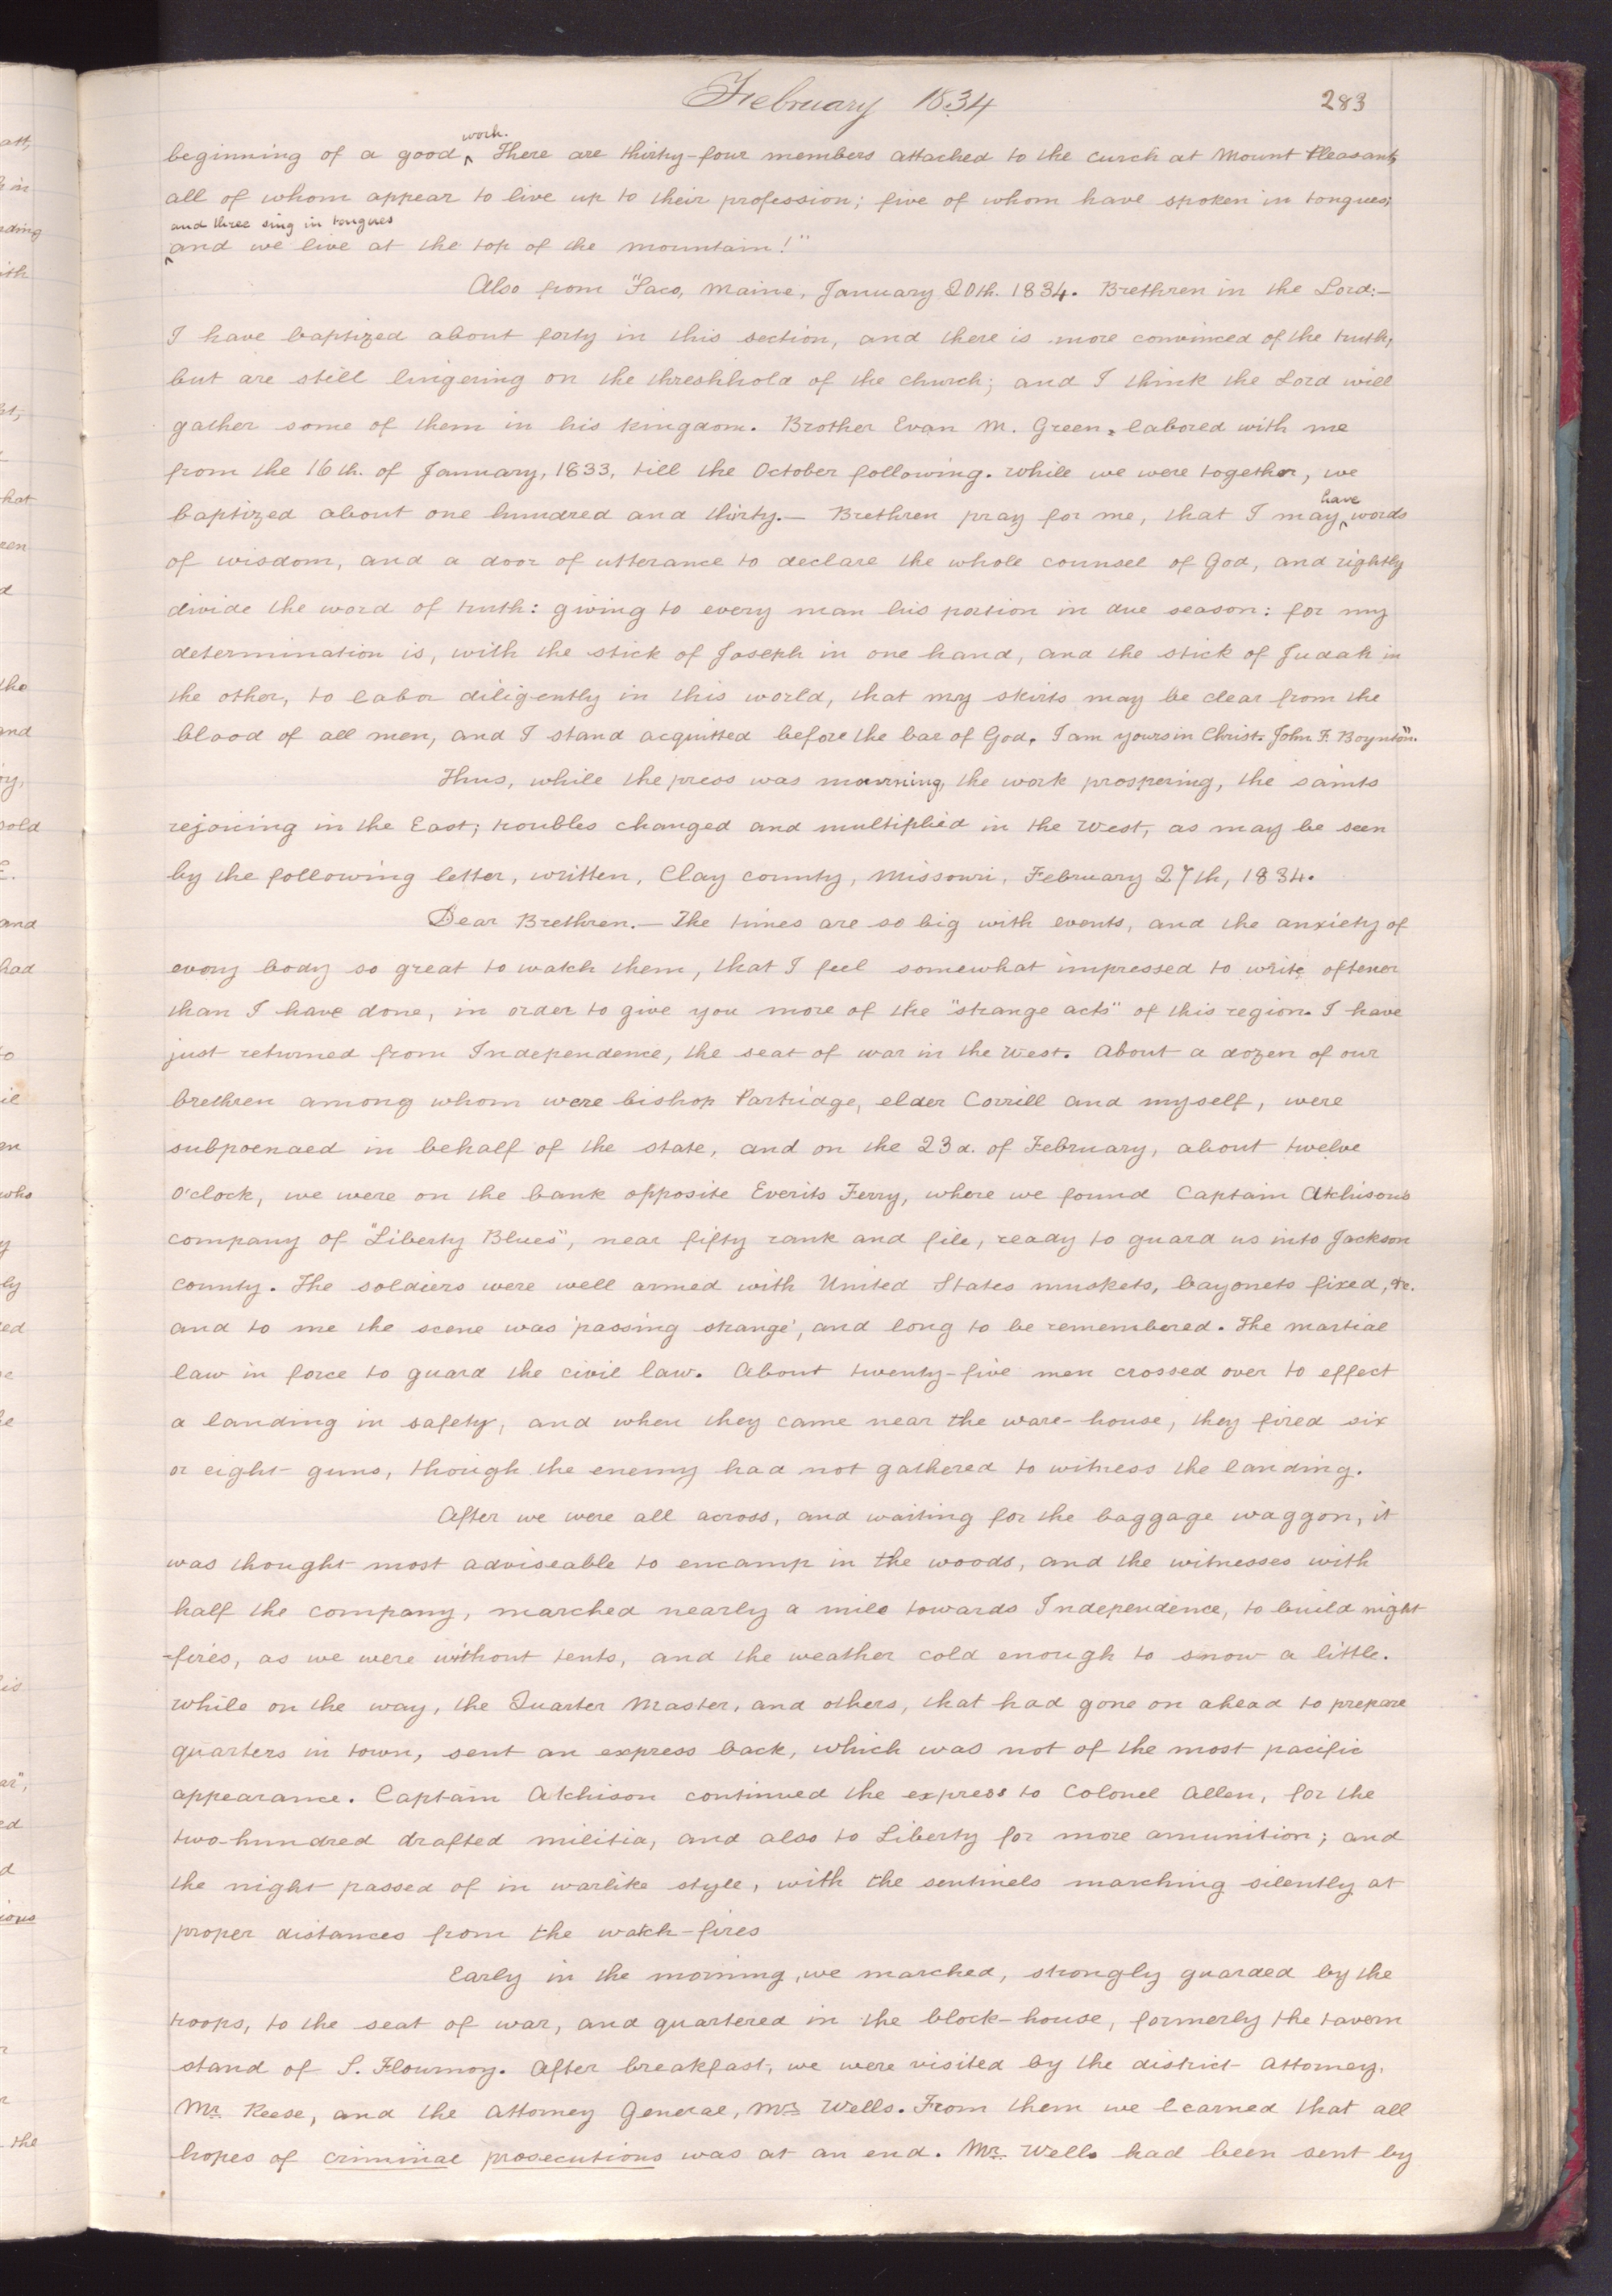 February 1834 283
beginning of a good ^work.^ There are thirty-four members attached to the curch at Mount Pleasant,
all of whom appear to live up to their profession; five of whom have spoken in tongues;
^and three sing in tongues^
and we live at the top of the mountain!"
Also from "Saco, Maine, January 20th. 1834. Brethren in the Lord:—
I have baptized about forty in this section, and there is more convinced of the truth,
but are still lingering on the threshhold of the church; and I think the Lord will
gather some of them in his kingdom. Brother Evan M. Green, labored with me
from the 16th. of January, 1833, till the October following. While we were together, we
baptized about one hundred and thirty.— Brethren pray for me, that I may ^have^ words
of wisdom, and a door of utterance to declare the whole counsel of God, and rightly
divide the word of truth: giving to every man his portion in due season: for my
determination is, with the stick of Joseph in one hand, and the stick of Judah in
the other, to labor diligently in this world, that my skirts may be clear from the
blood of all men, and I stand acquitted before the bar of God. I am yours in Christ. John F. Boynton".
Thus, while the press was mourning, the work prospering, the saints
rejoicing in the East; troubles changed and multiplied in the West, as may be seen
by the following letter, written, Clay county, Missouri, February 27th, 1834.
Dear Brethren.— The times are so big with events, and the anxiety of
every body so great to watch them, that I feel somewhat impressed to write oftener
than I have done, in order to give you more of the "strange acts" of this region. I have
just returned from Independence, the seat of war in the West. About a dozen of our
brethren among whom were bishop Partridge, elder Corrill and myself, were
subpoenaed in behalf of the state, and on the 23d. of February, about twelve
o'clock, we were on the bank opposite Everits Ferry, where we found Captain Atchisons
company of "Liberty Blues", near fifty rank and file, ready to guard us into Jackson
county. The soldiers were well armed with United States muskets, bayonets fixed, &c.
and to me the scene was 'passing strange', and long to be remembered. The martial
law in force to guard the civil law. About twenty-five men crossed over to effect
a landing in safety, and when they came near the ware-house, they fired six
or eight guns, though the enemy had not gathered to witness the landing.
After we were all across, and waiting for the baggage waggon, it
was thought most adviseable to encamp in the woods, and the witnesses with
half the company, marched nearly a mile towards Independence, to build night
-fires, as we were without tents, and the weather cold enough to snow a little.
While on the way, the Quarter Master, and others, that had gone on ahead to prepare
quarters in town, sent an express back, which was not of the most pacific
appearance. Captain Atchison continued the express to Colonel Allen, for the
two-hundred drafted militia, and also to Liberty for more amunition; and
the night passed of in warlike style, with the sentinels marching silently at
proper distances from the watch-fires
Early in the morning, we marched, strongly guarded by the
troops, to the seat of war, and quartered in the block-house, formerly the tavern
stand of S. Flournoy. After breakfast, we were visited by the district Attorney,
Mr. Reese, and the Attorney General, Mr. Wells. From them we learned that all
hopes of criminal prosecutions was at an end. Mr. Wells had been sent by